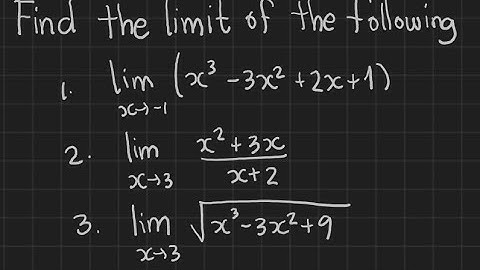 Find the limit of the following
1. lim x→-1 (x³ - 3x² + 2x + 1)
2. lim x→3 (x² + 3x)/(x + 2)
3. lim x→3 √(x³ - 3x² + 9)